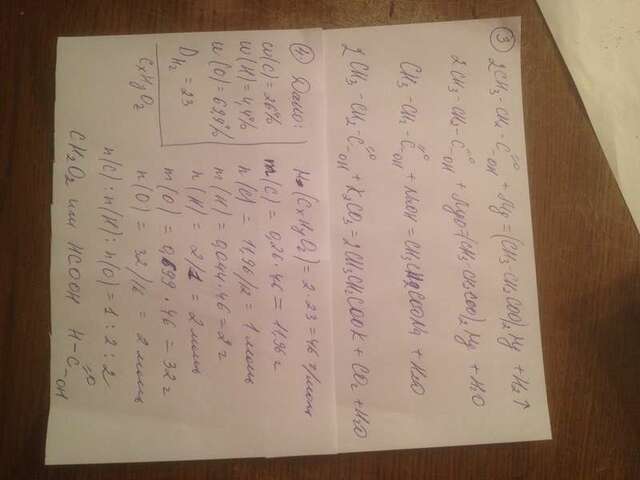 ③ 2CH3-CH2-C=O-OH + Mg = (CH3-CH2COO)2Mg + H2↑
2CH3-CH2-C=O-OH + MgO = (CH3-CH2COO)2Mg + H2O
CH3-CH2-C=O-OH + NaOH = CH3CH2COONa + H2O
2CH3-CH2-C=O-OH + K2CO3 = 2CH3CH2COOK + CO2 + H2O
④ Дано:
w(C)=26%
w(H)=4,4%
w(O)=69,9%
DH2 = 23
CxHyOz
M(CxHyOz) = 2·23=46 г/моль
m(C) = 0,26·46 = 11,96 г
n(C) = 11,96/12 = 1 моль
m(H) = 0,044·46=2 г
n(H) = 2/1 = 2 моль
m(O) = 0,699·46=32 г
n(O) = 32/16 = 2 моль
n(C):n(H):n(O)=1:2:2
CH2O2 или HCOOH H-C=O-OH